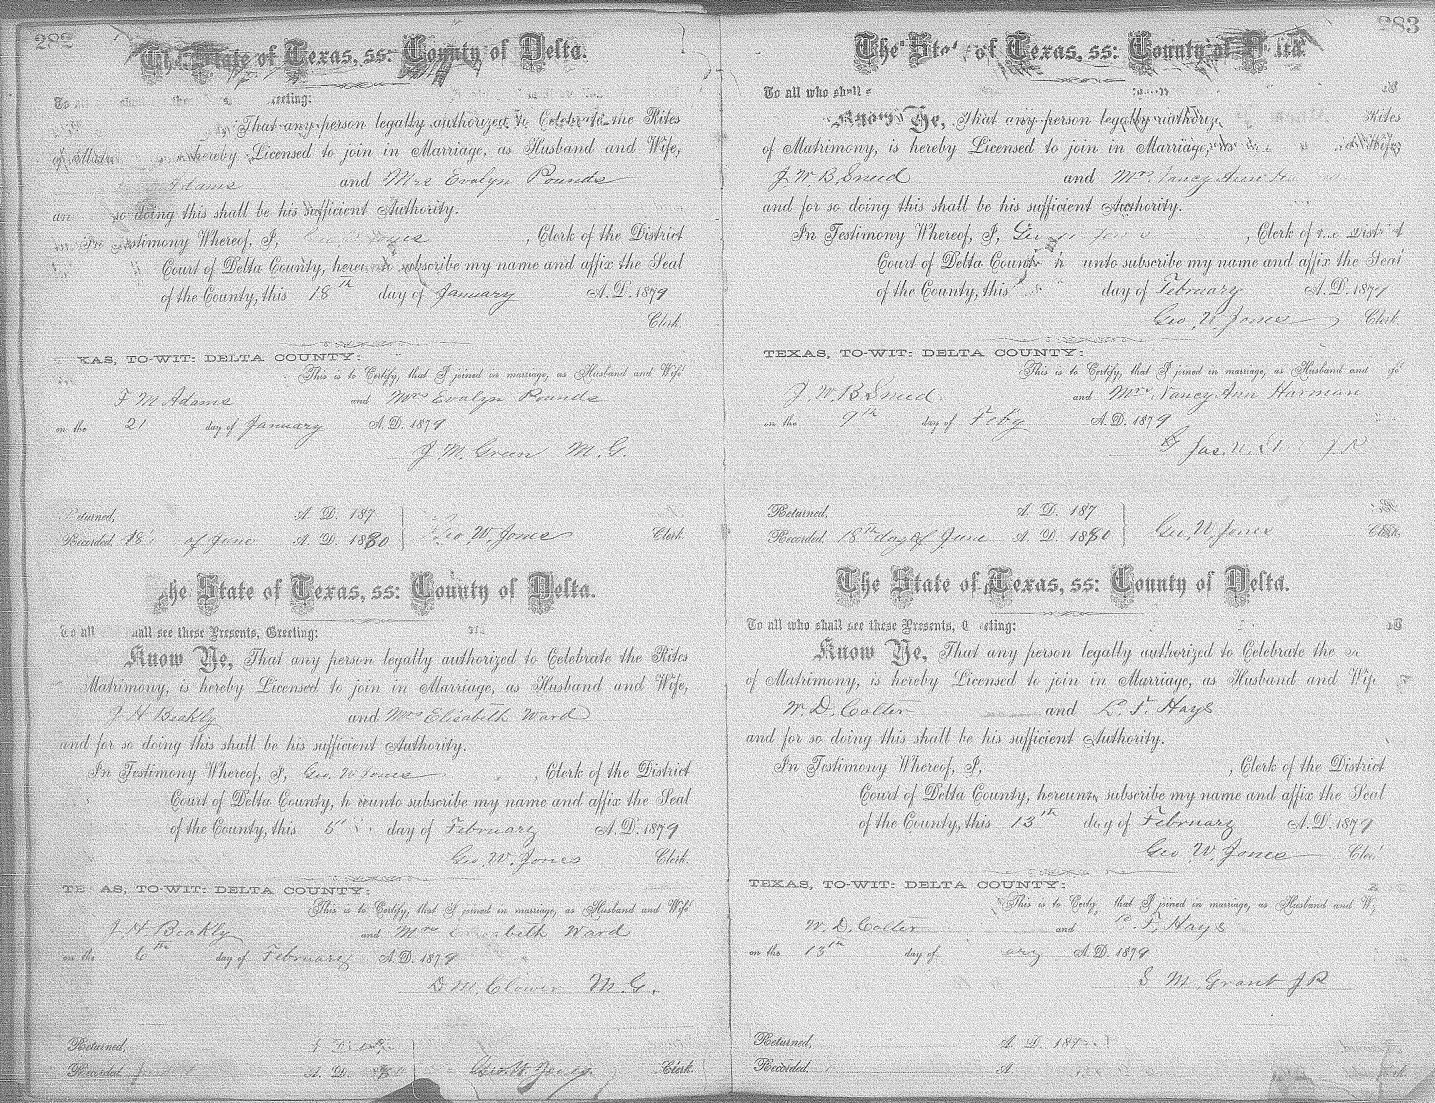 282
The State of Texas, ss: County of Delta.
To all shall the Greeting:
That any person legally authorized to Celebrate the Rites
of Matri hereby Licensed to join in Marriage, as Husband and Wife,
Adams and Mrs Evalyn Pounds
an so doing this shall be his sufficient Authority.
In Testimony Whereof, I, Jones, Clerk of the District
Court of Delta County, hereunto subscribe my name and affix the Seal
of the County, this 18th day of January A. D. 1879
Clerk.
XAS, TO-WIT: DELTA COUNTY:
This is to Certify, that I joined in marriage, as Husband and Wife
F M Adams and Mrs Evalyn Pounds
on the 21 day of January A. D. 1879
J. M. Green M. G.
Returned, A. D. 187
Recorded, 18 of June A. D. 1880 Geo W. Jones Clerk.
The State of Texas, ss: County of Delta.
To all shall see these Presents, Greeting:
Know Ye, That any person legally authorized to Celebrate the Rites
Matrimony, is hereby Licensed to join in Marriage, as Husband and Wife,
J H Beakly and Mrs Elisabeth Ward
and for so doing this shall be his sufficient Authority.
In Testimony Whereof, I, Geo. W Jones, Clerk of the District
Court of Delta County, hereunto subscribe my name and affix the Seal
of the County, this 5 day of February A. D. 1879
Geo. W. Jones Clerk.
TEXAS, TO-WIT: DELTA COUNTY:
This is to Certify, that I joined in marriage, as Husband and Wife
J H Beakly and Mrs Elisabeth Ward
on the 6th day of February A. D. 1879
D M Clower M. G.
Returned,
Recorded A. D. 1880 Geo. W. Jones Clerk.
283
The State of Texas, ss: County of Delta.
To all who shall
Know Ye, That any person legally authorize Rites
of Matrimony, is hereby Licensed to join in Marriage, Wife
J. W. B. Sneed and Mrs. Nancy Ann
and for so doing this shall be his sufficient Authority.
In Testimony Whereof, I, Geo Jones, Clerk of the District
Court of Delta County hereunto subscribe my name and affix the Seal
of the County, this day of February A. D. 1879
Geo. W. Jones Clerk.
TEXAS, TO-WIT: DELTA COUNTY:
This is to Certify, that I joined in marriage, as Husband and Wife
J. W. B Sneed and Mrs Nancy Ann Harman
on the 9th day of Feby A. D. 1879
Jas.
Returned, A. D. 187
Recorded, 18th day of June A. D. 1880 Geo, W, Jones Clerk.
The State of Texas, ss: County of Delta.
To all who shall see these Presents, Greeting:
Know Ye, That any person legally authorized to Celebrate the
of Matrimony, is hereby Licensed to join in Marriage, as Husband and Wife
W. D. Colter and L. F. Hays
and for so doing this shall be his sufficient Authority.
In Testimony Whereof, I, , Clerk of the District
Court of Delta County, hereunto subscribe my name and affix the Seal
of the County, this 13th day of February A. D. 1879
Geo W. Jones Clerk
TEXAS, TO-WIT: DELTA COUNTY:
This is to Certify, that I joined in marriage, as Husband and Wife
W. D. Colter and L. F. Hays
on the 13th day of ary A. D. 1879
S M Grant J P
Returned, A. D. 187
Recorded. A.